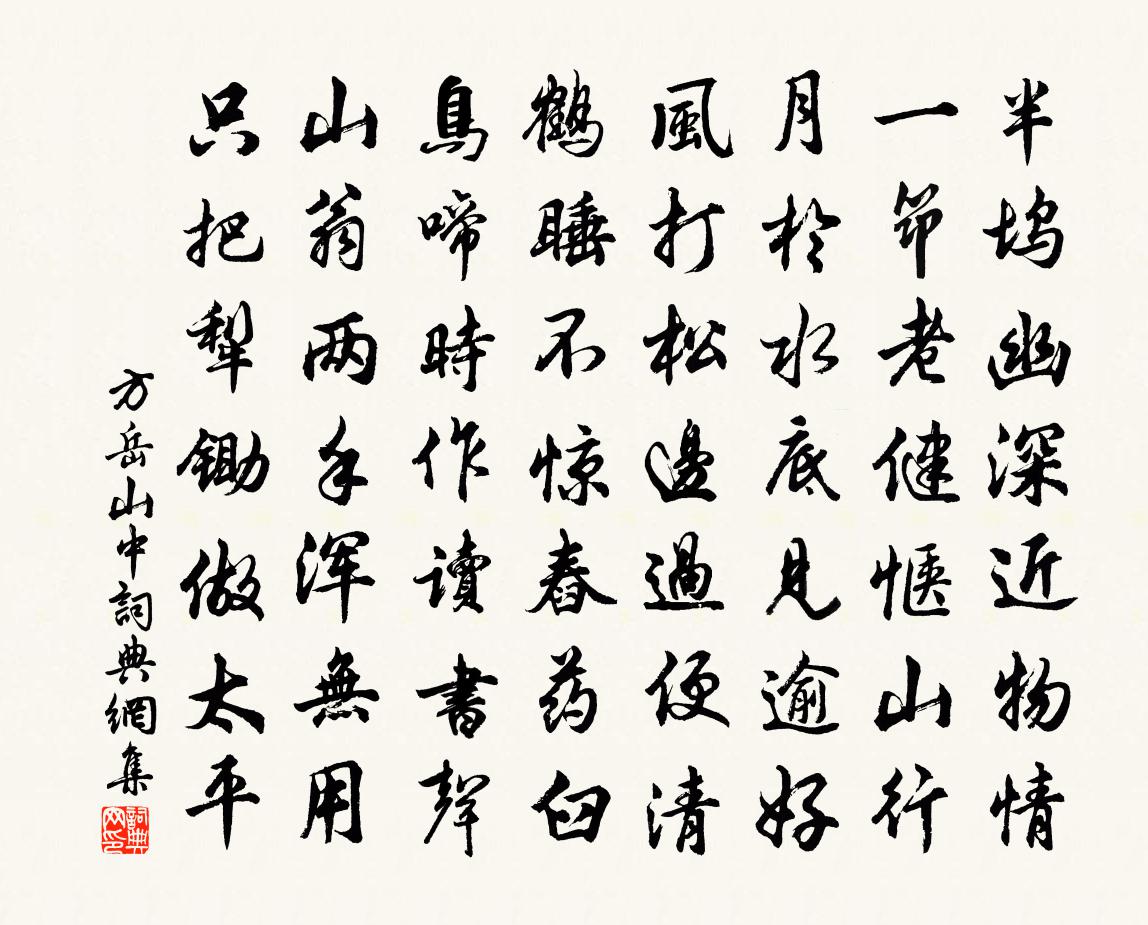 半坞幽深近物情
一筇老健惬山行
月於水底見逾好
風打松邊過便清
鶴睡不惊舂药臼
鳥啼時作讀書聲
山翁两手浑無用
只把犁鋤做太平
方岳山中詞典網集
詞典网印